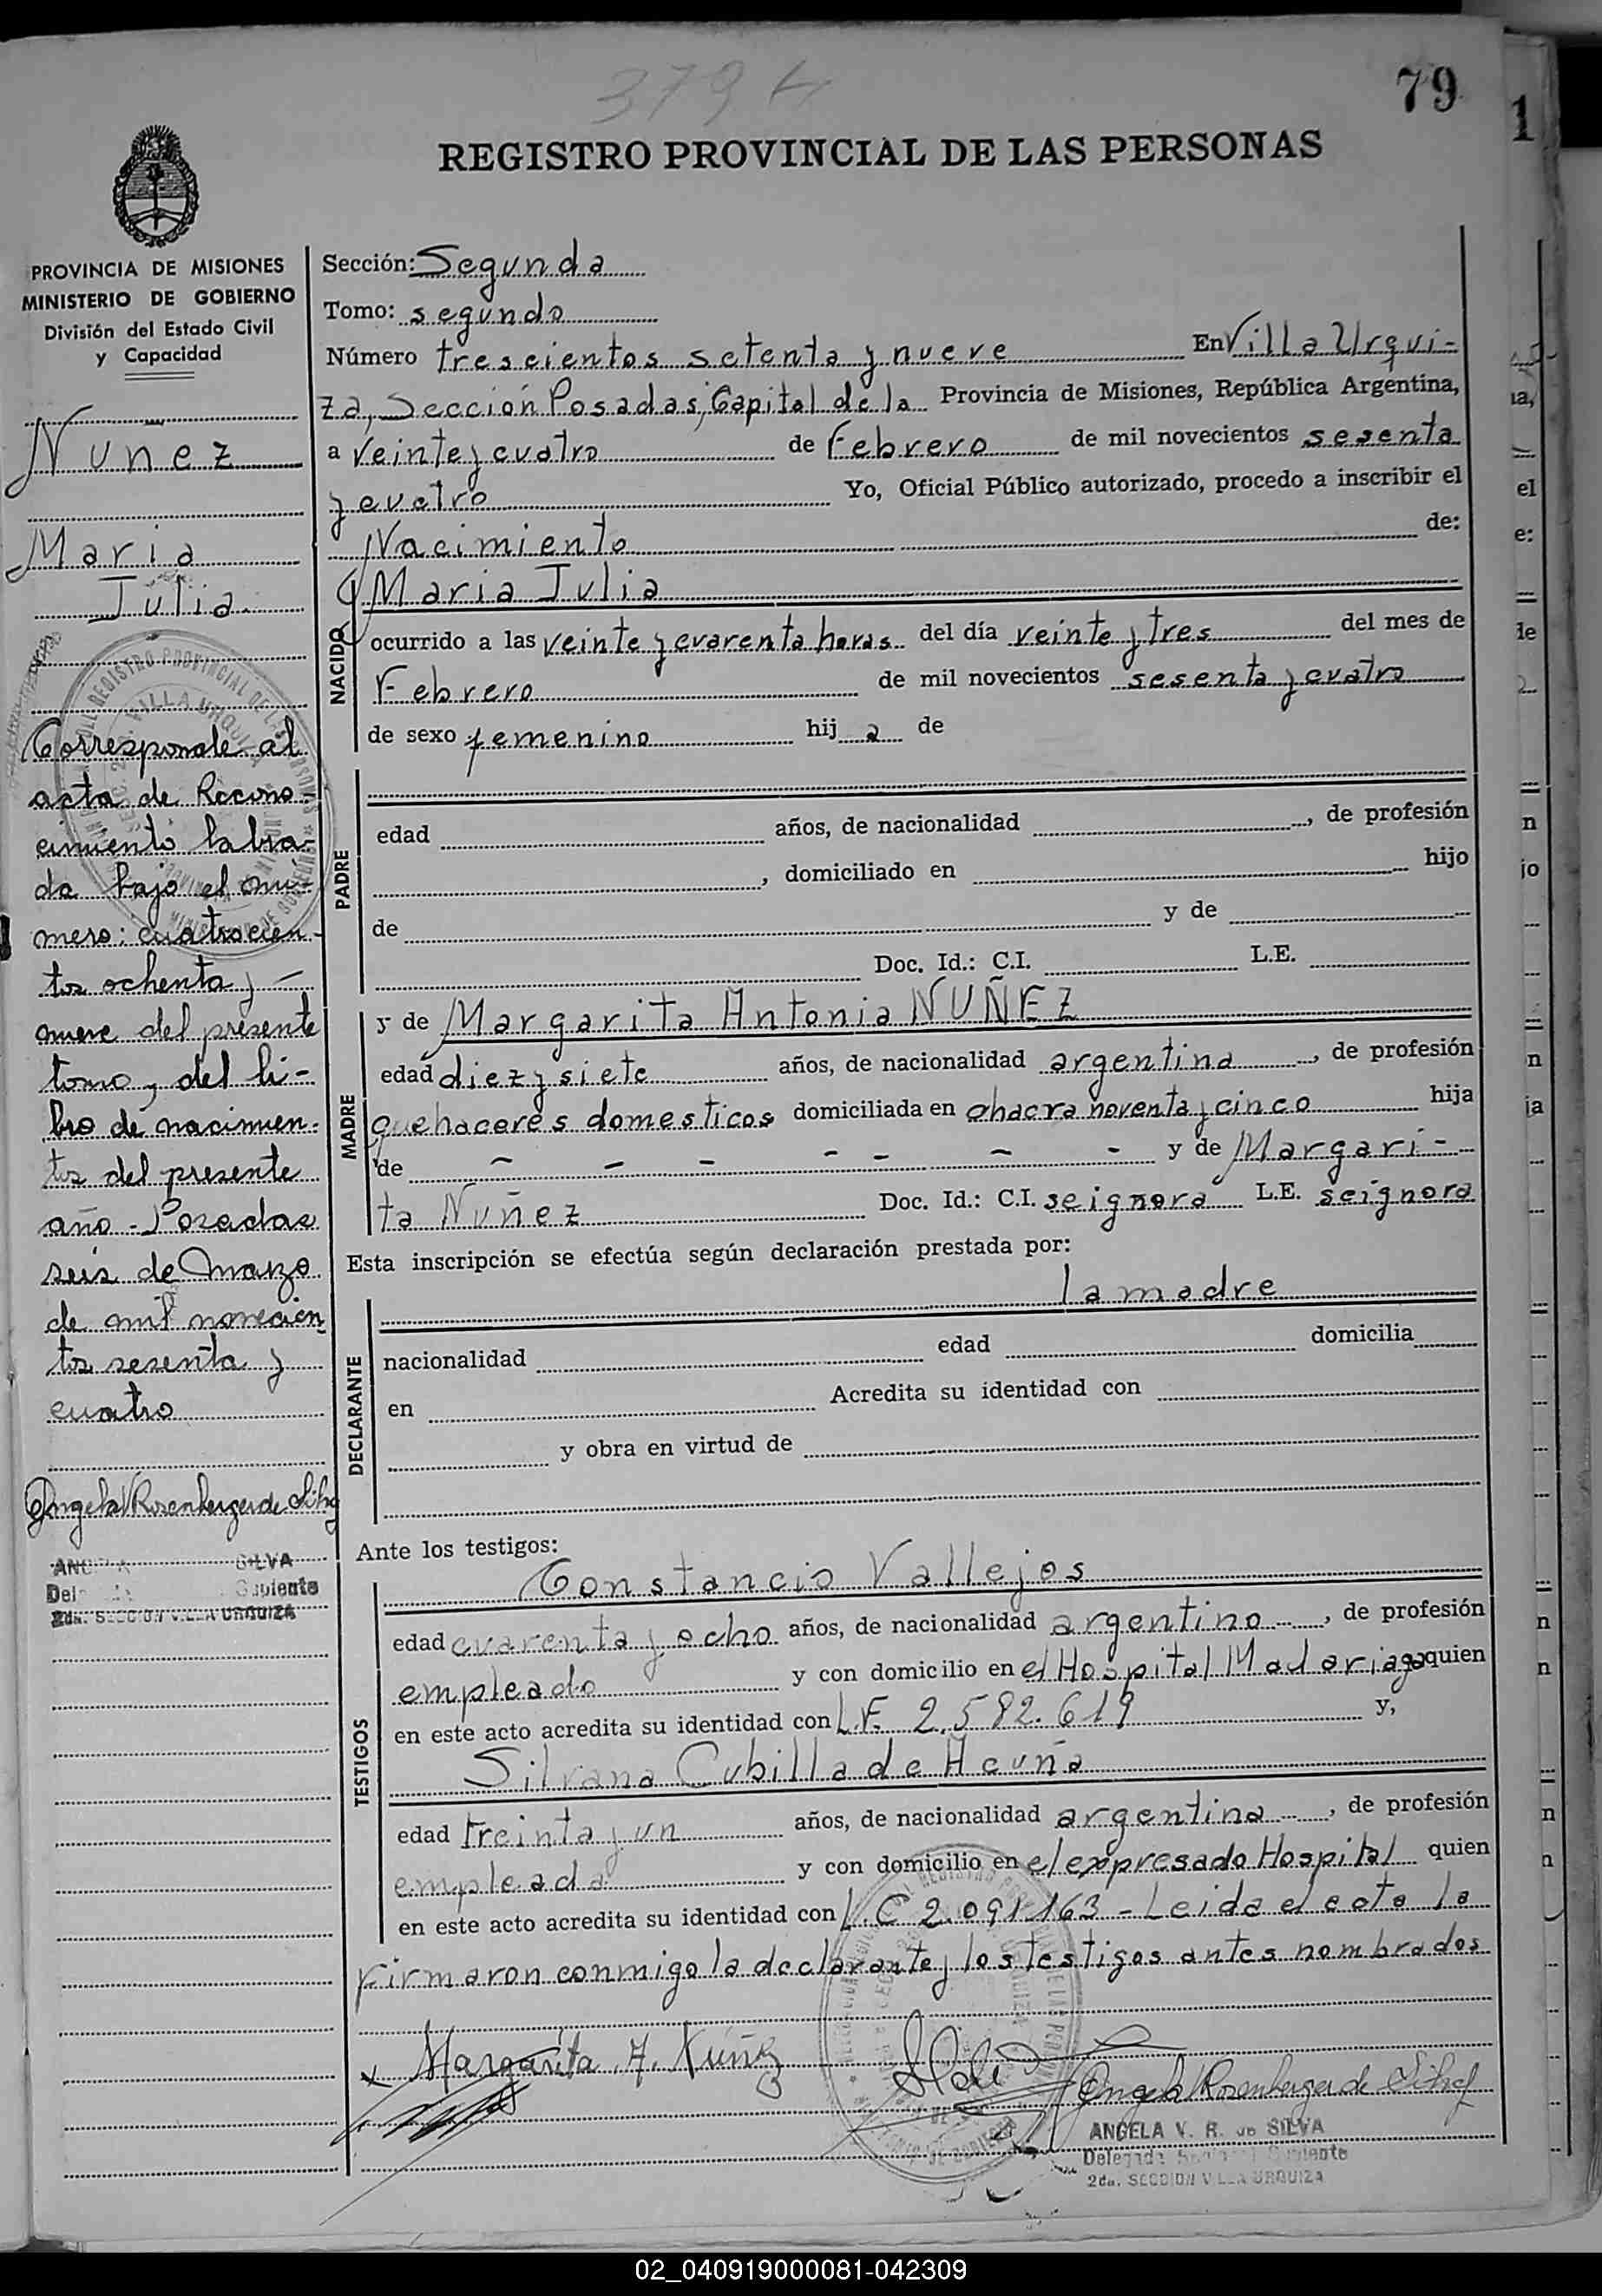 379 H
79
1
REGISTRO PROVINCIAL DE LAS PERSONAS
PROVINCIA DE MISIONES
MINISTERIO DE GOBIERNO
División del Estado Civil
y Capacidad
Nuñez
Maria
Julia
Corresponde al
acta de Recono-
cimiento labra-
da bajo el nú-
mero: cuatrocien-
tos ochenta y
nueve del presente
tomo y del li-
bro de nacimien-
tos del presente
año - Posadas
seis de Marzo
de mil novecien
tos sesenta y
cuatro
Angela V Rosenberger de Silva
SILVA
Suplente
2da. SECCION VILLA URQUIZA
Sección: Segunda
Tomo: segundo
Número trescientos setenta y nueve En Villa Urqui-
za, Sección Posadas, Capital de la Provincia de Misiones, República Argentina,
a veinte y cuatro de Febrero de mil novecientos sesenta
y cuatro Yo, Oficial Público autorizado, procedo a inscribir el
Nacimiento de:
Maria Julia
NACIDO
ocurrido a las veinte y cuarenta horas del día veinte y tres del mes de
Febrero de mil novecientos sesenta y cuatro
de sexo femenino hij a de
PADRE
edad años, de nacionalidad , de profesión
, domiciliado en hijo
de y de
Doc. Id.: C.I. L.E.
MADRE
y de Margarita Antonia NUÑEZ
edad diez y siete años, de nacionalidad argentina , de profesión
quehaceres domesticos domiciliada en chacra noventa y cinco hija
de - - - - - - - y de Margari-
ta Nuñez Doc. Id.: C.I. seignora L.E. seignora
Esta inscripción se efectúa según declaración prestada por:
la madre
DECLARANTE
nacionalidad edad domicilia
en Acredita su identidad con
y obra en virtud de
Ante los testigos:
TESTIGOS
Constancio Vallejos
edad cuarenta y ocho años, de nacionalidad argentino , de profesión
empleado y con domicilio en el Hospital Madariaga quien
en este acto acredita su identidad con L.E. 2.582.619 y,
Silvana Cubilla de Acuña
edad treinta y un años, de nacionalidad argentina , de profesión
empleada y con domicilio en el expresado Hospital quien
en este acto acredita su identidad con L.C 2.091163 - Leida el acta la
firmaron conmigo la declarante y los testigos antes nombrados
x Margarita A. Nuñez
Angela V Rosenberger de Silva
ANGELA V. R. de SILVA
Delegada Suplente
2da. SECCION VILLA URQUIZA
02_040919000081-042309